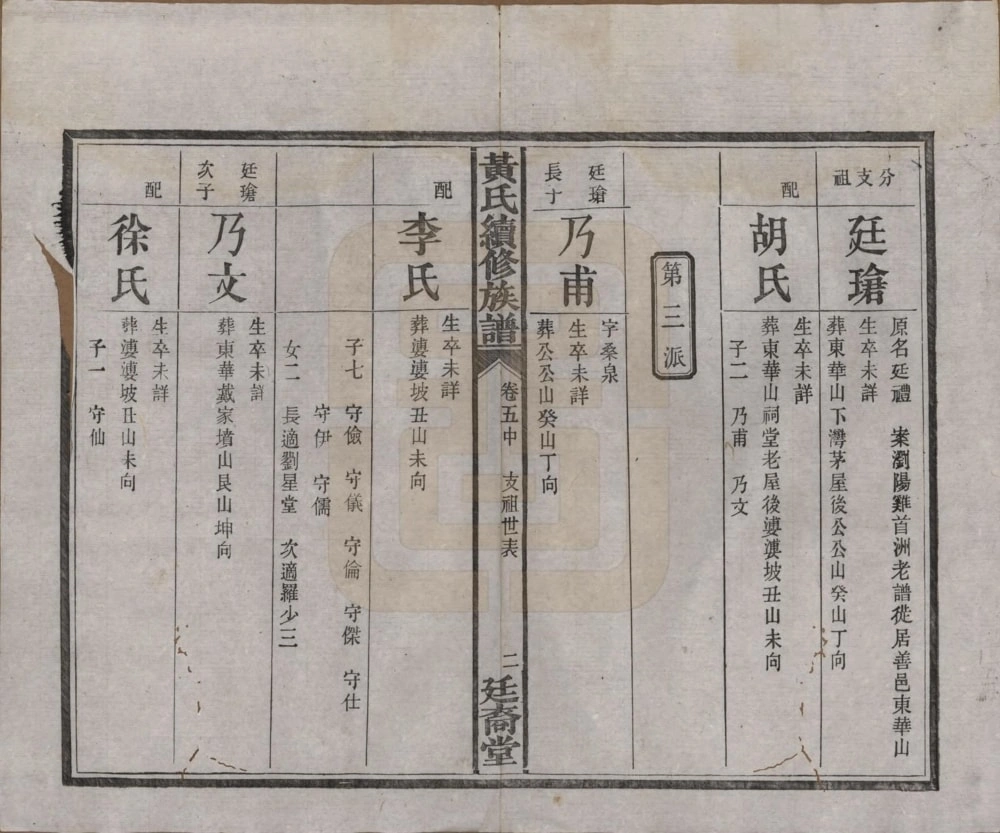 分支祖
廷瑲
原名廷禮 案瀏陽雞首洲老譜徙居善邑東華山
生卒未詳
葬東華山下灣茅屋後公公山癸山丁向
配
胡氏
生卒未詳
葬東華山祠堂老屋後婆婆坡丑山未向
子二 乃甫 乃文
第三派
廷瑲
長子
乃甫
字桑泉
生卒未詳
葬公公山癸山丁向
黃氏續修族譜
卷五中 支祖世表
二
廷裔堂
配
李氏
生卒未詳
葬婆婆坡丑山未向
子七 守儉 守儀 守倫 守傑 守仕
守伊 守儒
女二 長適劉星堂 次適羅少三
廷瑲
次子
乃文
生卒未詳
葬東華戴家墳山艮山坤向
配
徐氏
生卒未詳
葬婆婆坡丑山未向
子一 守仙